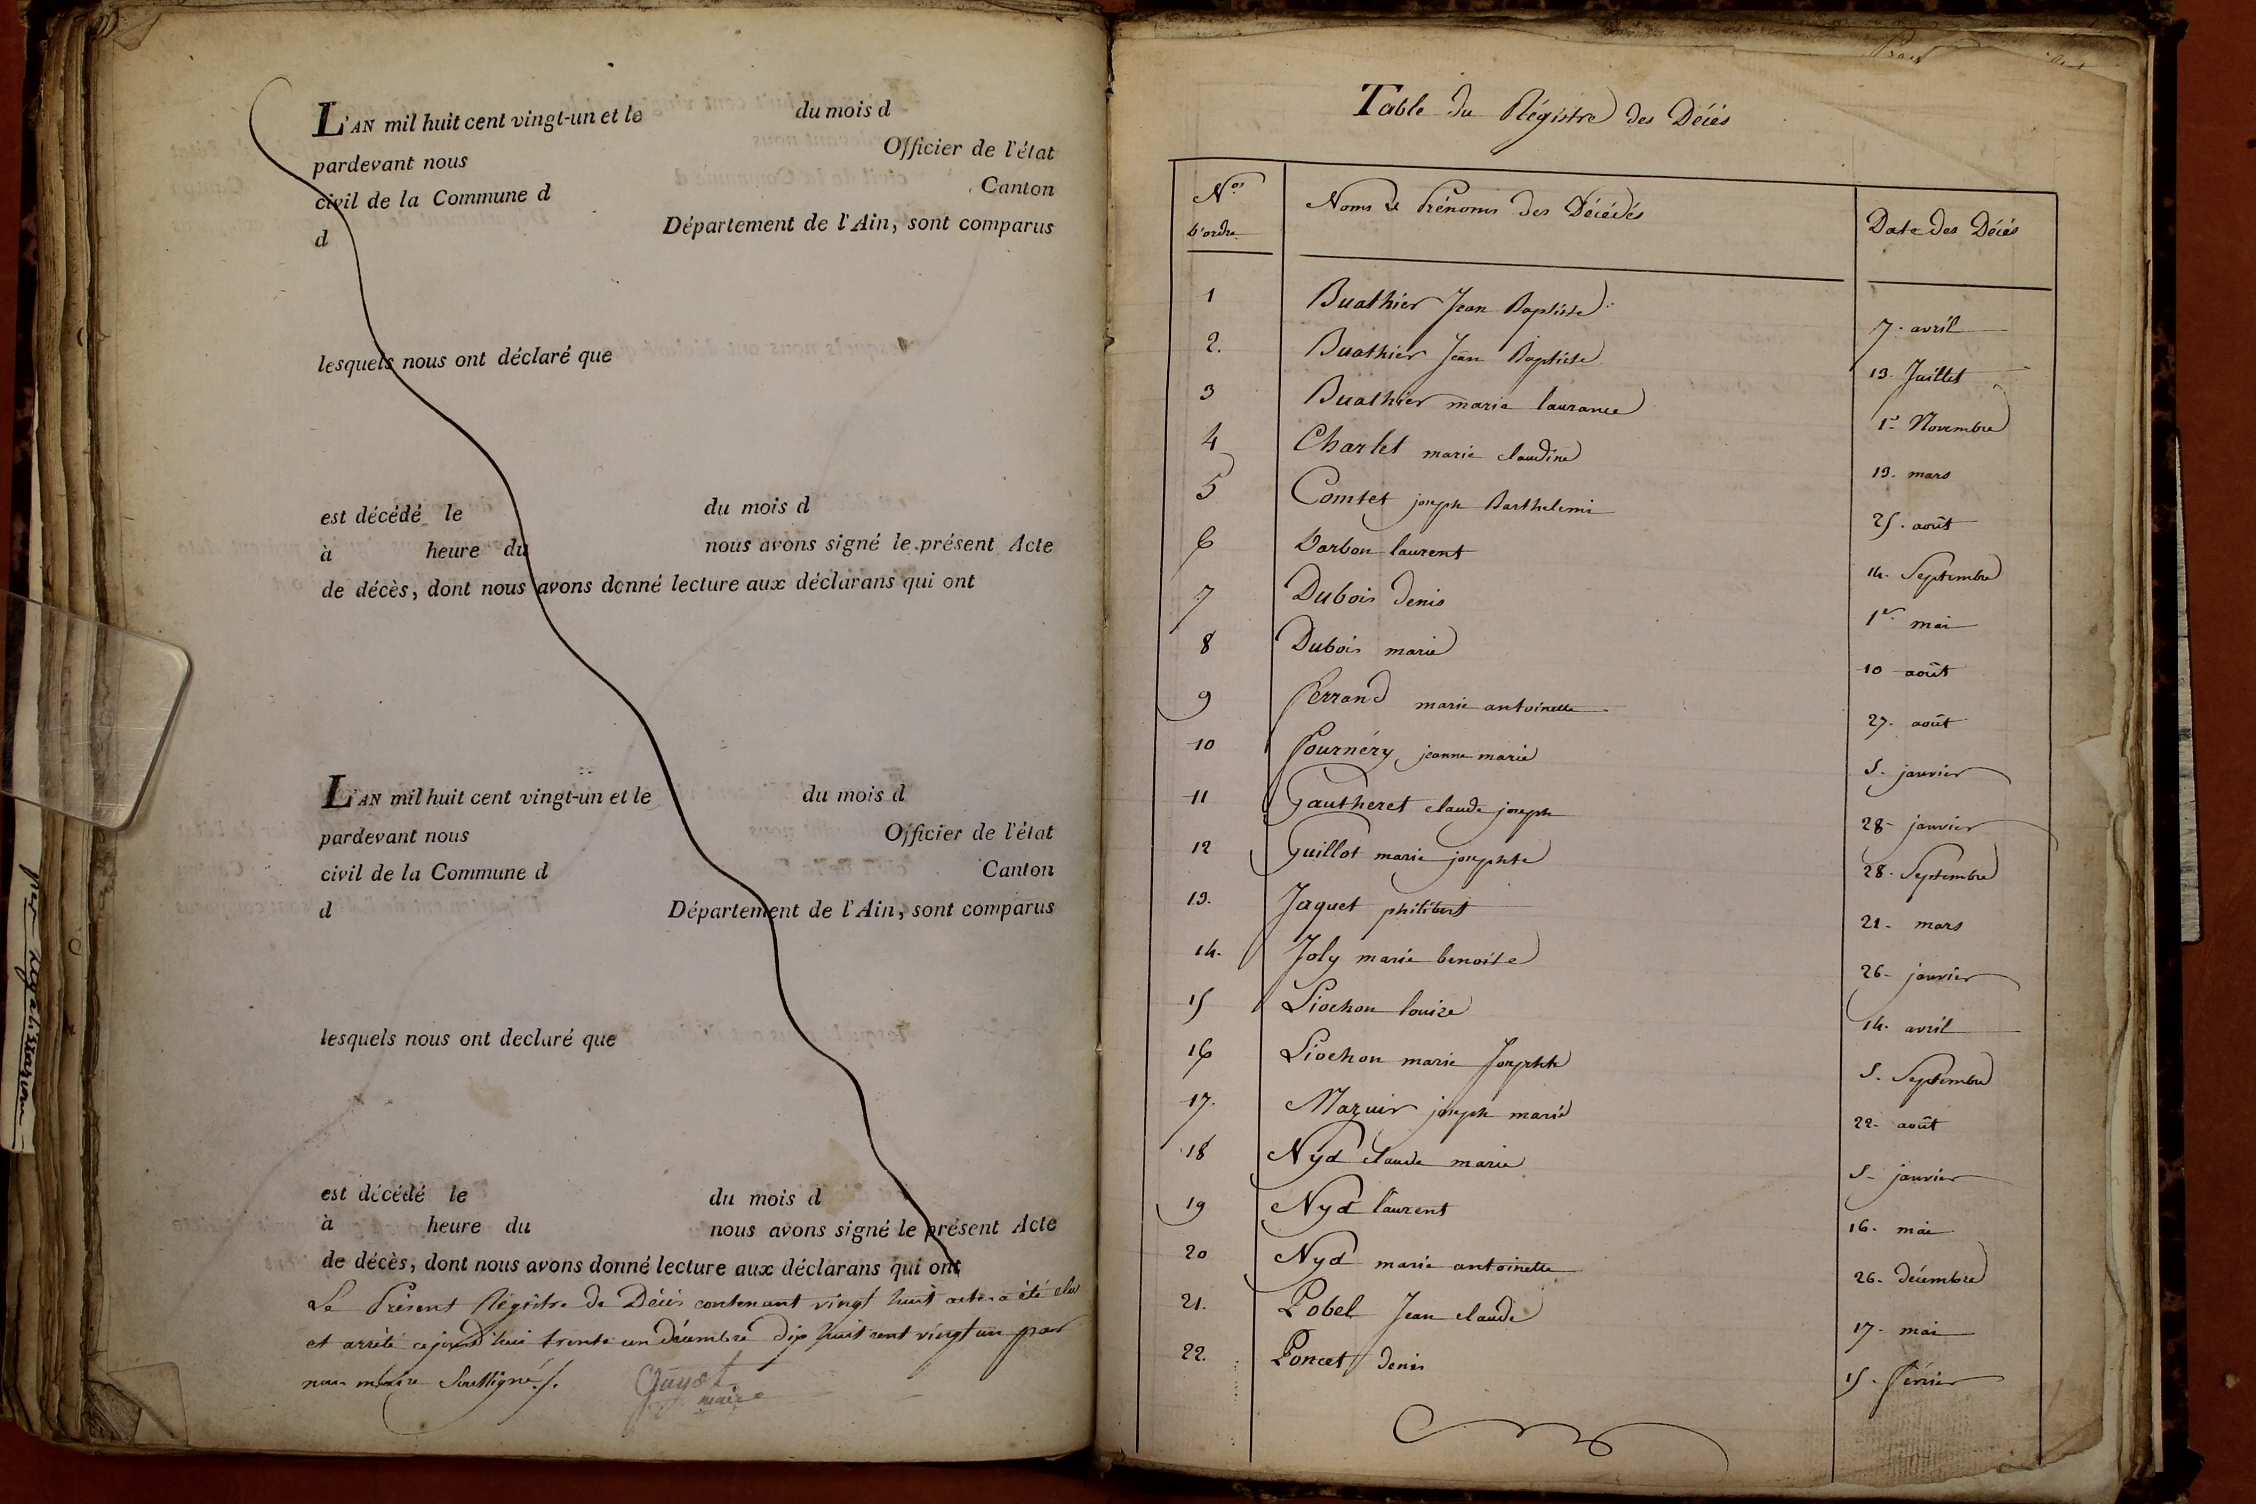 L'AN mil huit cent vingt-un et le du mois d
pardevant nous Officier de l'état
civil de la Commune d Canton
d Département de l'Ain, sont comparus
lesquels nous ont déclaré que
est décédé le du mois d
à heure du nous avons signé le présent Acte
de décès, dont nous avons donné lecture aux déclarans qui ont
L'AN mil huit cent vingt-un et le du mois d
pardevant nous Officier de l'état
civil de la Commune d Canton
d Département de l'Ain, sont comparus
lesquels nous ont declaré que
est décédé le du mois d
à heure du nous avons signé le présent Acte
de décès, dont nous avons donné lecture aux déclarans qui ont
Le Présent Régistre de Décès contenant vingt huit actes a été clos
et arrêté ce jourd'hui trente un décembre dix huit cent vingt un par
nous maire Soussigné ./.
Guyot
maire
Table du Régistre des Décès
Nos d'ordre Noms et Prénoms des Décédés Date des Décès
1 Buathier Jean Baptiste 7. avril
2. Buathier Jean Baptiste 13. Juillet
3 Buathier marie laurance 1er Novembre
4 Charlet marie claudine 13. mars
5 Comtet joseph Barthelemi 25. août
6 Darbon laurent 14. Septembre
7 Dubois denis 1er mai
8 Dubois marie 10 août
9 Ferrand marie antoinette 27. août
10 Fournéry jeanne marie 5. janvier
11 Gautheret claude joseph 28. janvier
12 Guillot marie josephte 28. Septembre
13. Jaquet philibert 21. mars
14. Joly marie benoite 26. janvier
15 Liochon louise 14. avril
16 Liochon marie Josephte 5. Septembre
17. Mazuir joseph marie 22. août
18 Nyd claude marie 5. janvier
19 Nyd laurent 16. mai
20 Nyd marie antoinette 26. décembre
21. Pobel Jean claude 17. mai
22. Poncet denis 15. février